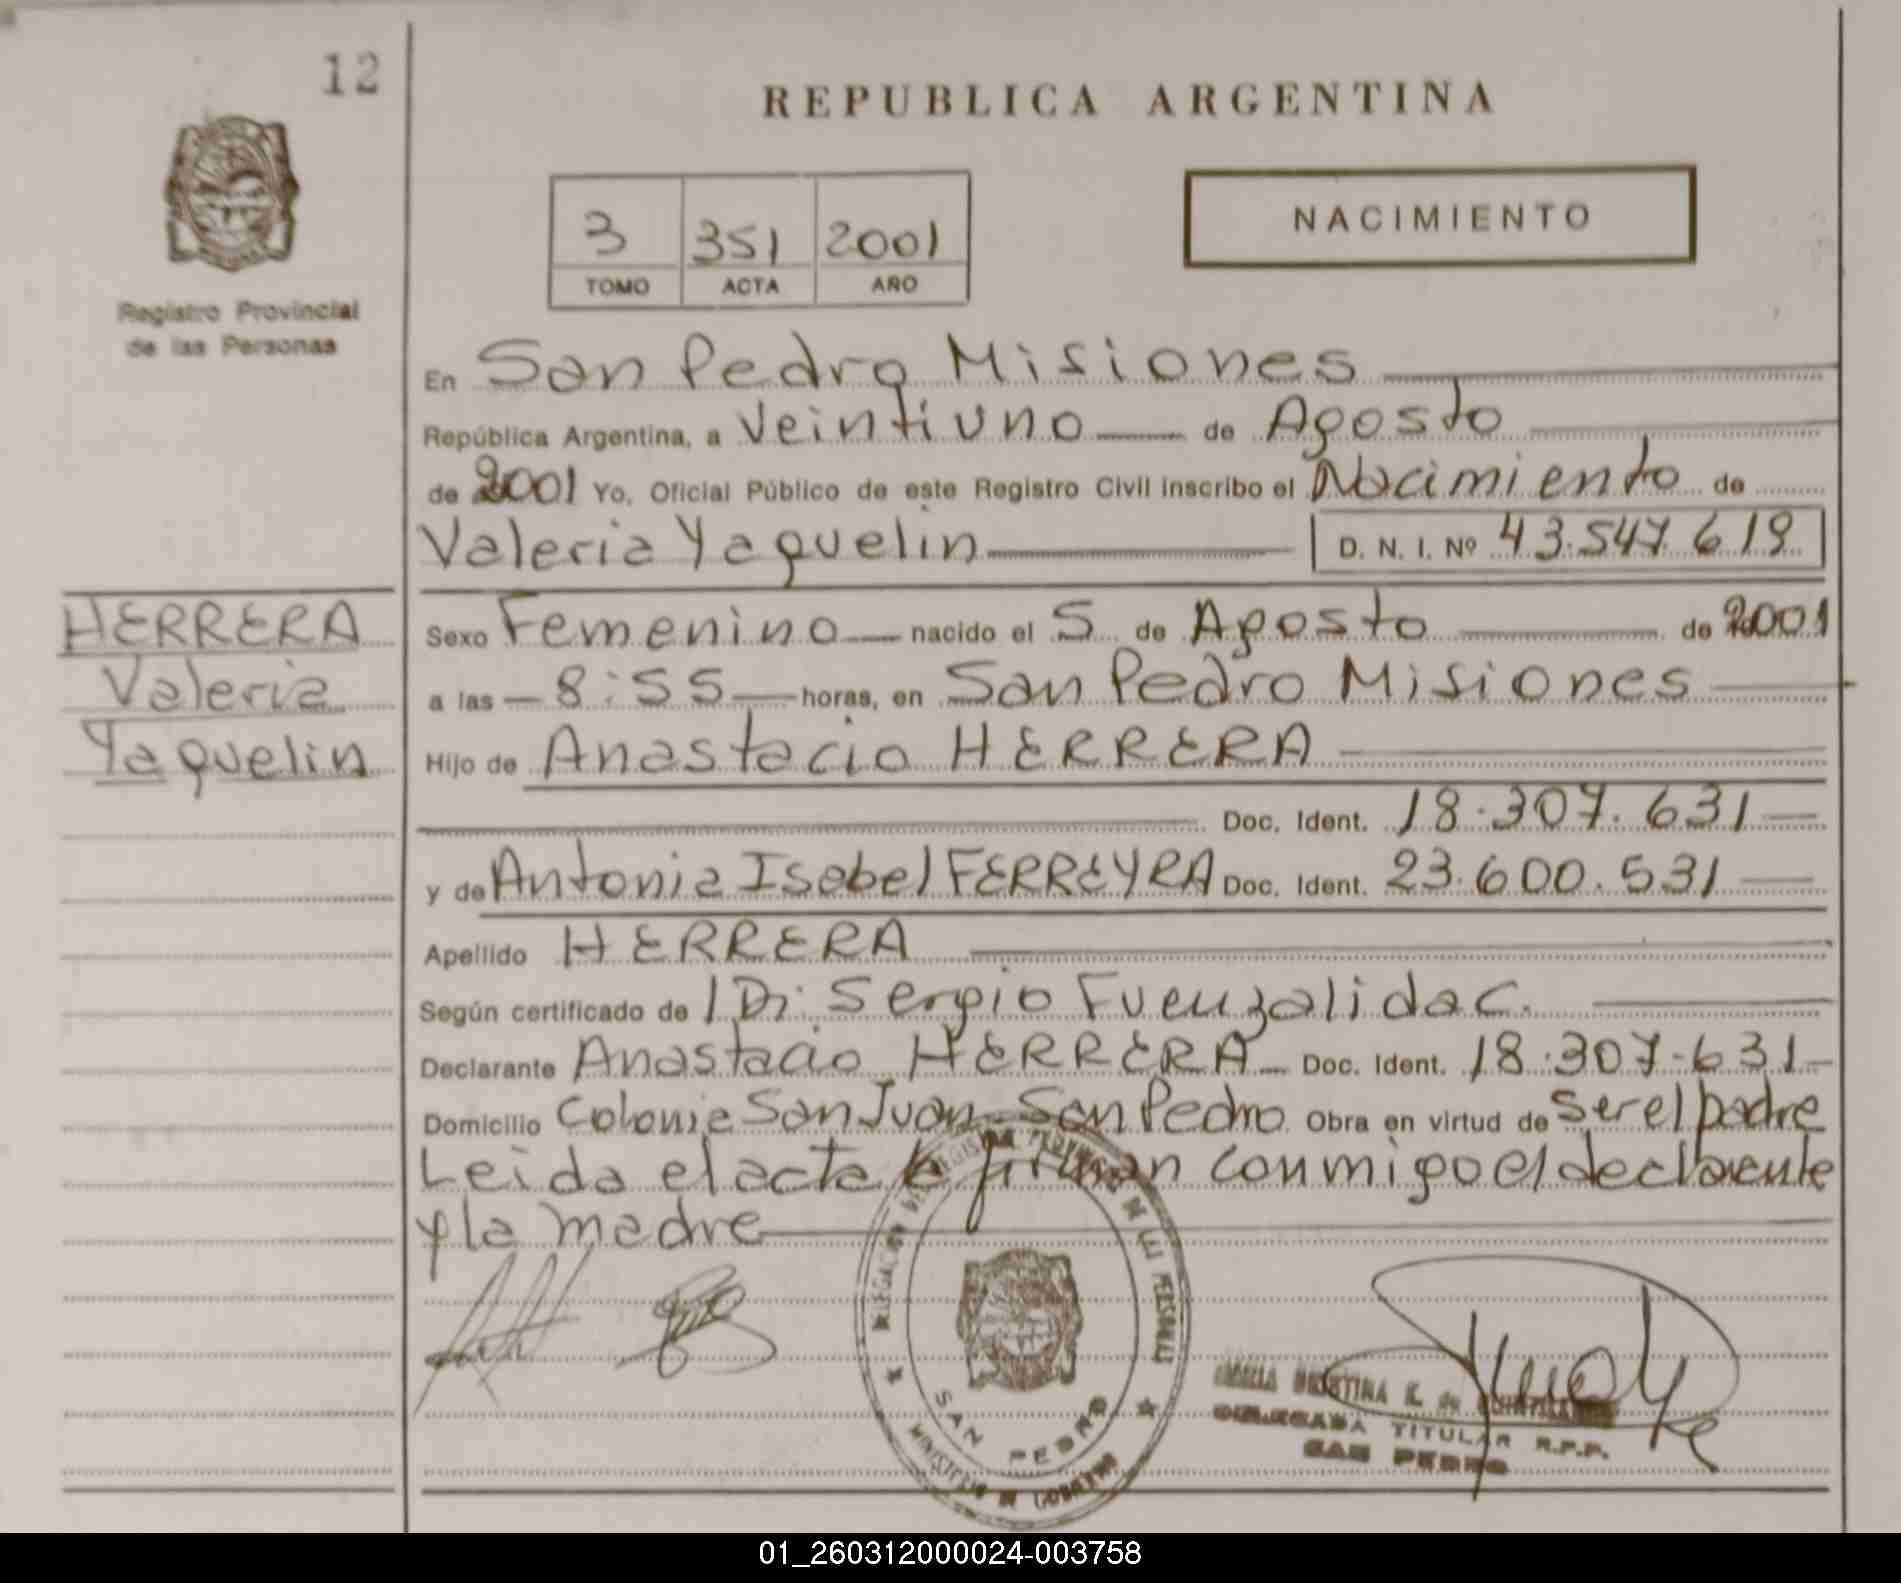 12
REPUBLICA ARGENTINA
Registro Provincial
de las Personas
3 351 2001
TOMO ACTA AÑO
NACIMIENTO
En San Pedro Misiones
República Argentina, a Veintiuno de Agosto
de 2001 Yo, Oficial Público de este Registro Civil inscribo el Nacimiento de
Valeria Yaquelin D. N. I. Nº 43.547.619
HERRERA
Valeria
Yaquelin
Sexo Femenino nacido el 5 de Agosto de 2001
a las 8:55 horas, en San Pedro Misiones
Hijo de Anastacio HERRERA
Doc. Ident. 18.307.631
y de Antonia Isabel FERREYRA Doc. Ident. 23.600.531
Apellido HERRERA
Según certificado de / Dr: Sergio Fuenzalida C.
Declarante Anastacio HERRERA Doc. Ident. 18.307.631
Domicilio Colonia San Juan San Pedro Obra en virtud de ser el padre
Leida el acta la firman conmigo el declarante
y la madre
DELEGACION DEL REGISTRO PROVINCIAL DE LAS PERSONAS
SAN PEDRO
MINISTERIO DE GOBIERNO
DELEGADA TITULAR R.P.P.
SAN PEDRO
01_260312000024-003758